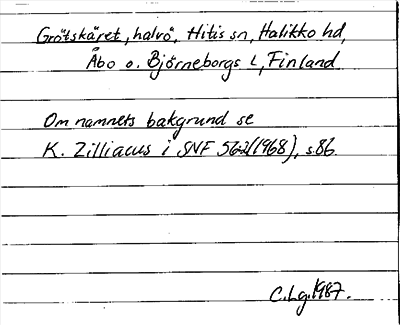 Grötskäret, halvö, Hitis sn, Halikko hd,
Åbo o. Björneborgs L, Finland
Om namnets bakgrund se
K. Zilliacus i SNF 562(1968), s.86.
C.Lg.1987.